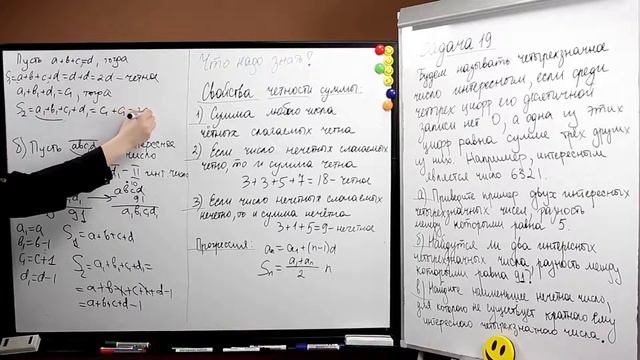 Пусть a+b+c=d, тогда
S₁=a+b+c+d=d+d=2d – четная
a₁+b₁+d₁=c₁, тогда
S₂=a₁+b₁+c₁+d₁=c₁+c₁=
б) Пусть abcd
число
a₁=a
b₁=b-1
c₁=c+1
d₁=d-1
S₁=a+b+c+d
S₂=a₁+b₁+c₁+d₁=
=a+b-1+c+1+d-1
=a+b+c+d-1
Что надо знать!
Свойства четности суммы:
1) Сумма любого числа
четных слагаемых четна
2) Если число нечетных слагаемых
четно, то и сумма четна
3+3+5+7=18 - четна
3) Если число нечетных слагаемых
нечетно, то и сумма нечетна
3+1+5=9 - нечетная
Прогрессия: aₙ=a₁+(n-1)d
Sₙ=(a₁+aₙ)/2 · n
Задача 19
Будем называть четырехзначное
число интересным, если среди
четырех цифр его десятичной
записи нет 0, а одна из этих
цифр равна сумме трех других
из них. Например, интересным
является число 6321.
а) Приведите пример двух интересных
четырехзначных чисел, разность
между которыми равна 5.
б) Найдутся ли два интересных
четырехзначных числа, разность между
которыми равна 91?
в) Найдите наименьшее нечетное число,
для которого не существует кратного ему
интересного четырехзначного числа.